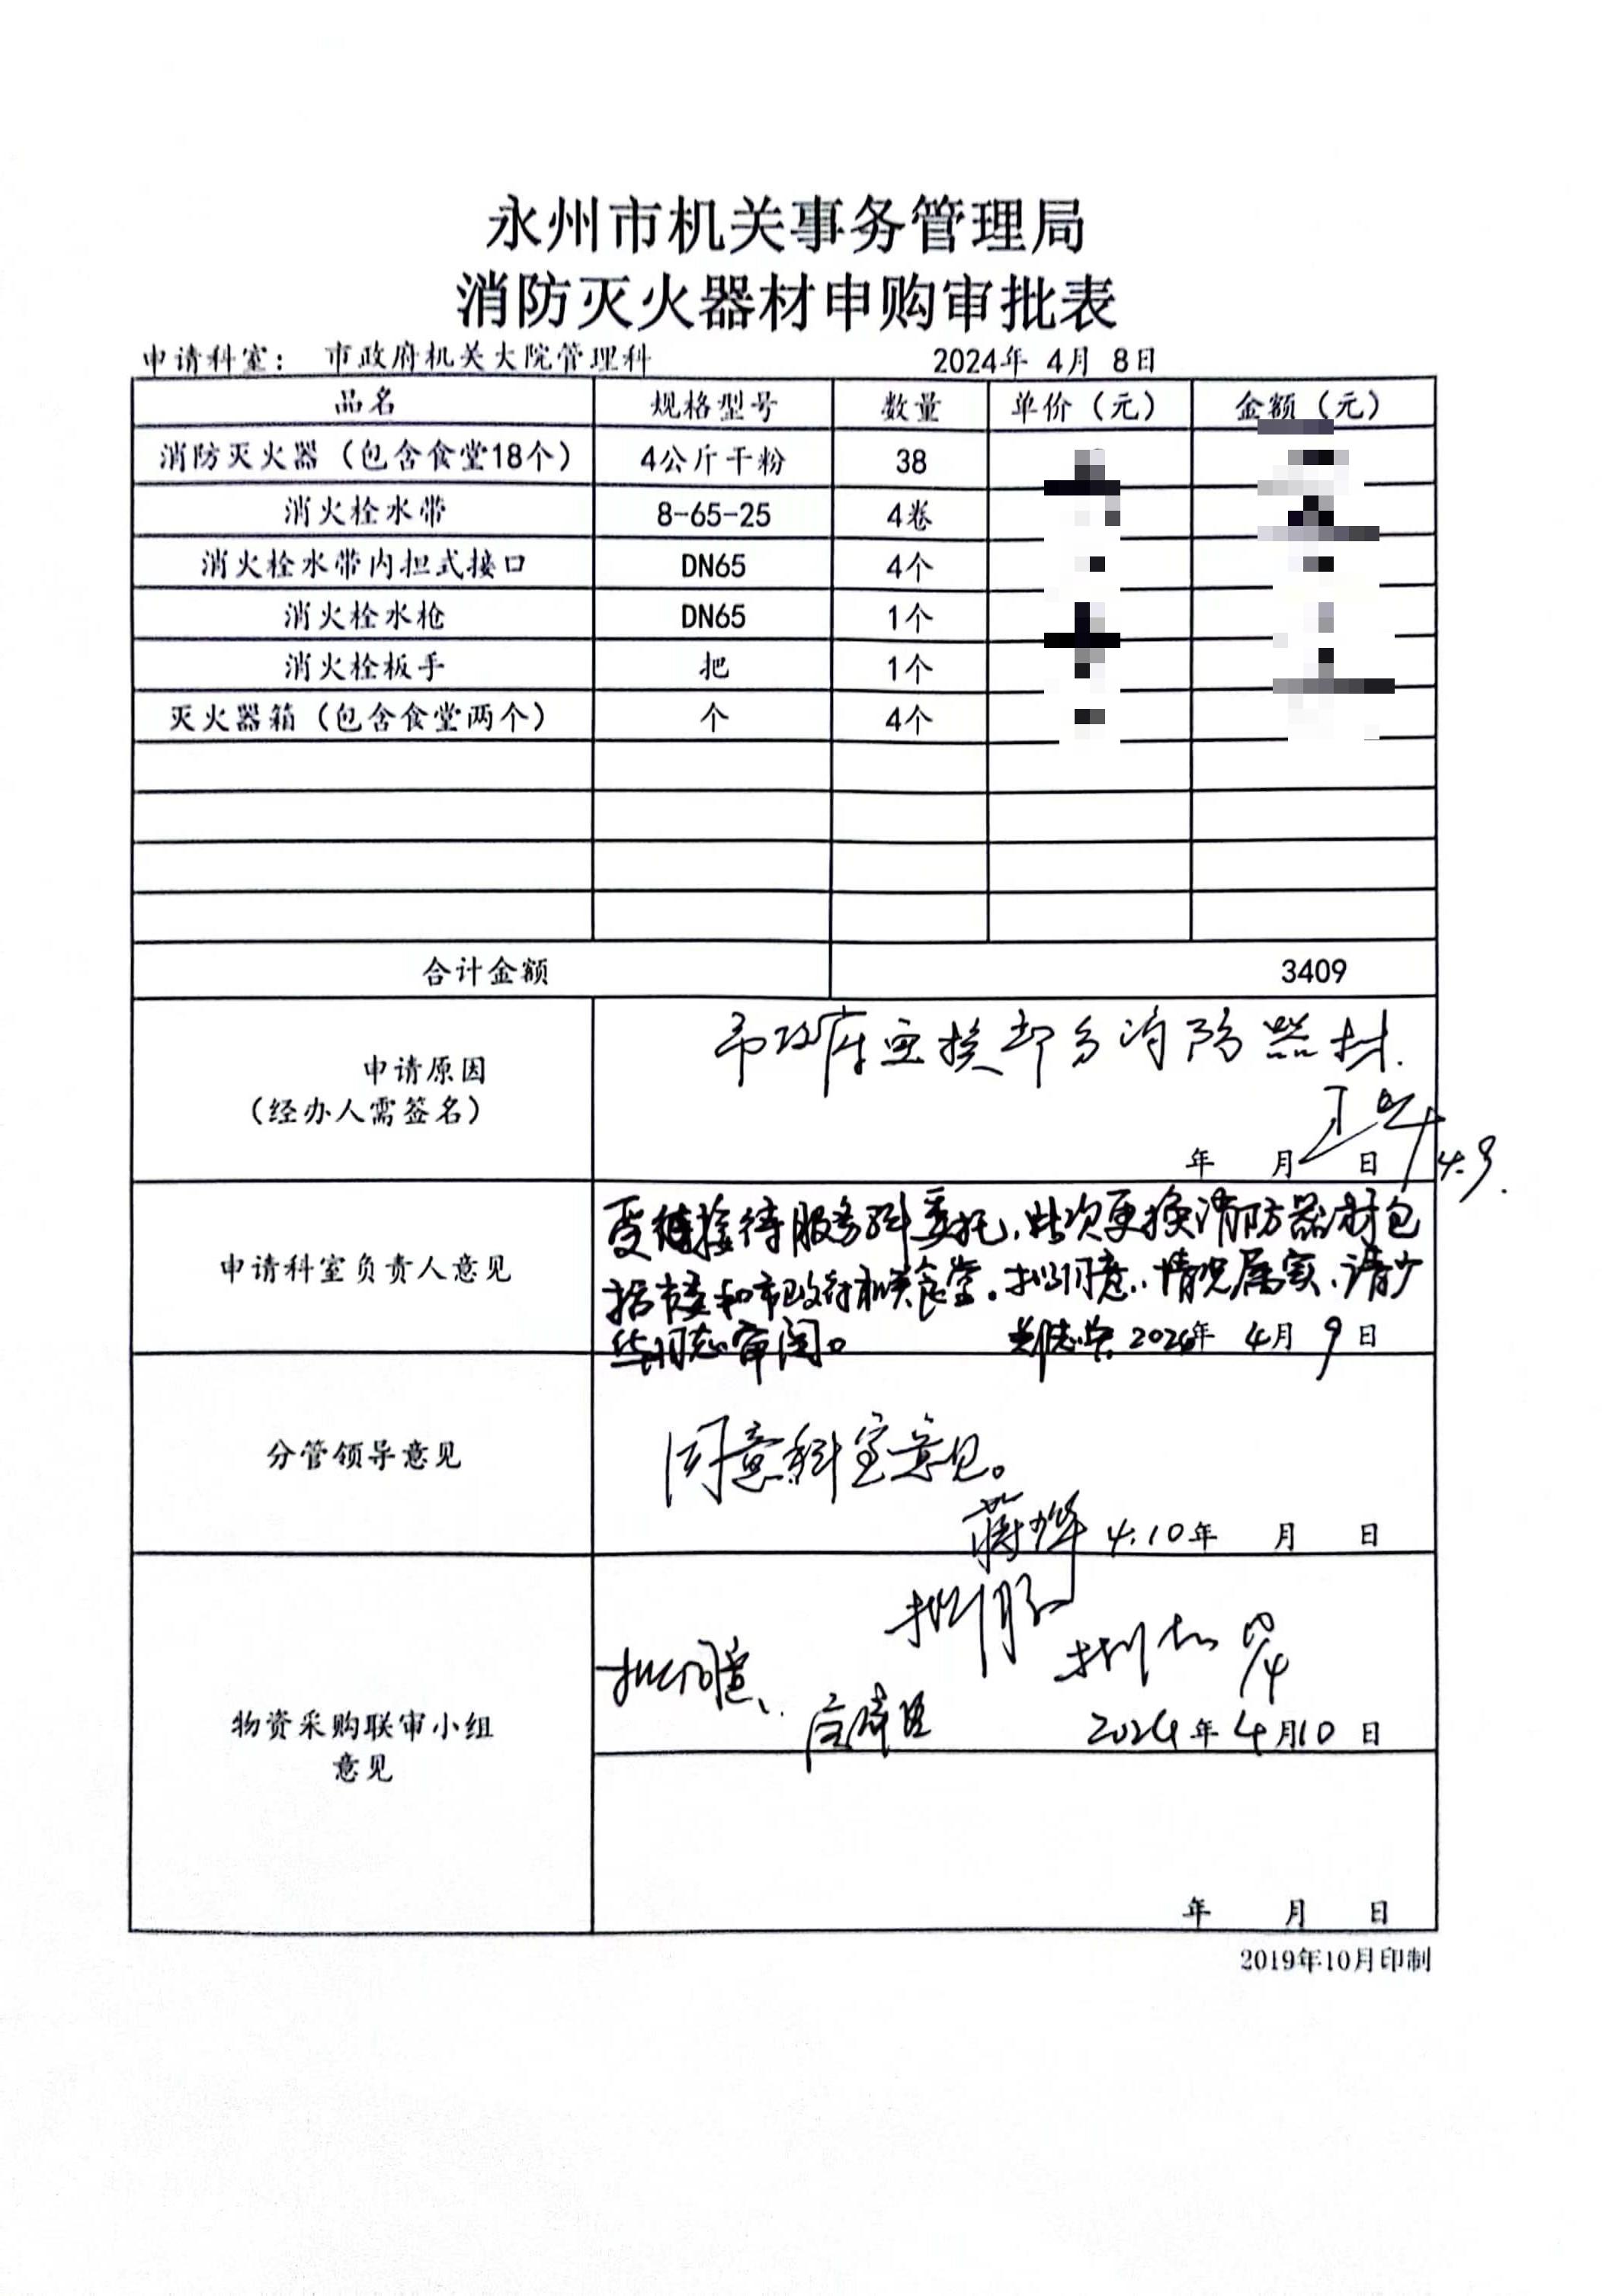 永州市机关事务管理局
消防灭火器材申购审批表
申请科室： 市政府机关大院管理科 2024年 4月 8日
品名 规格型号 数量 单价（元） 金额（元）
消防灭火器（包含食堂18个） 4公斤干粉 38
消火栓水带 8-65-25 4卷
消火栓水带内扣式接口 DN65 4个
消火栓水枪 DN65 1个
消火栓板手 把 1个
灭火器箱（包含食堂两个） 个 4个
合计金额 3409
市政府更换部分消防器材.
申请原因
（经办人需签名）
年 月 日 4.9.
受接待服务科委托,此次更换消防器材包
申请科室负责人意见
括市委和市政府机关食堂。拟同意,情况属实,请少
华同志审阅。 2024年 4月 9日
同意科室意见。
分管领导意见
蒋少华 4.10年 月 日
拟同意、
物资采购联审小组
意见
2024年4月10日
年 月 日
2019年10月印制